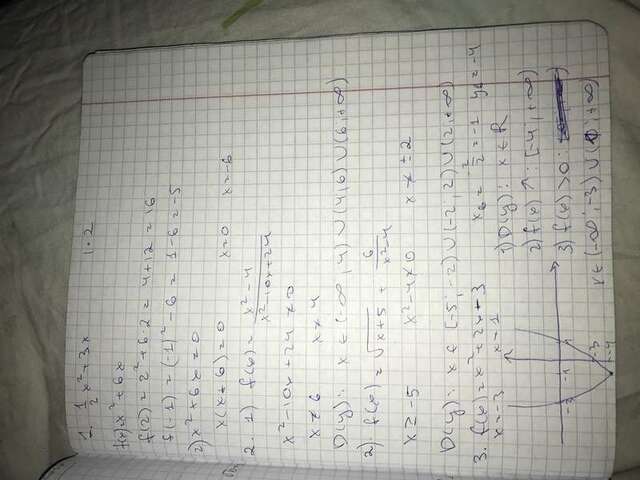 1. 1/2 x² + 3x | · 2
f(x) = x² + 6x
f(2) = 2² + 6·2 = 4 + 12 = 16
f(-1) = (-1)² - 6 = 1 - 6 = -5
2) x² + 6x = 0
x(x + 6) = 0 x = 0 x = -6
2. 1) f(x) = (x² - 4)/(x² - 10x + 24)
x² - 10x + 24 ≠ 0
x ≠ 6 x ≠ 4
D(y): x ∈ (-∞, 4) ∪ (4; 6) ∪ (6; +∞)
2) f(x) = √(x+5) + 6/(x² - 4)
x ≥ -5 x² - 4 ≠ 0 x ≠ ±2
D(y): x ∈ [-5; -2) ∪ (-2; 2) ∪ (2; +∞)
3. f(x) = x² + 2x - 3 x₆ = -2/2 = -1 y₆ = -4
x = -3 x = 1 1) D(y): x ∈ R
2) f(x) ↑ : [-4; +∞)
-3 -1 1 3) f(x) > 0:
-3
-4 x ∈ (-∞; -3) ∪ ( ; +∞)